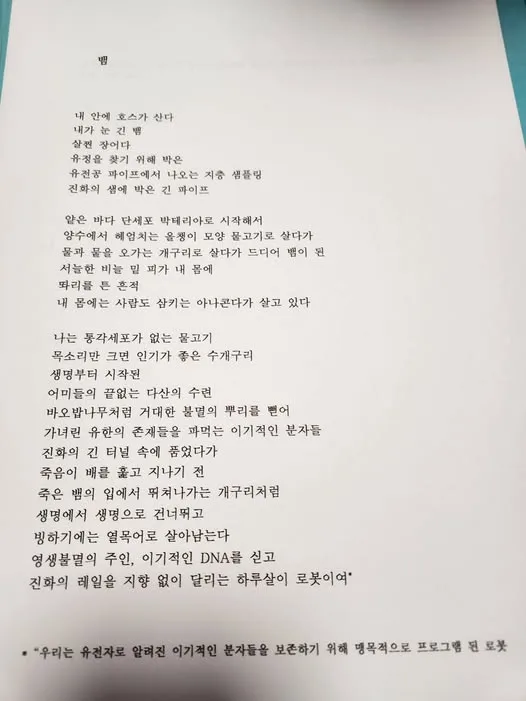 뱀
내 안에 호스가 산다
내가 눈 긴 뱀
살찐 장어다
유정을 찾기 위해 박은
유전공 파이프에서 나오는 지층 샘플링
진화의 샘에 박은 긴 파이프
얕은 바다 단세포 박테리아로 시작해서
양수에서 헤엄치는 올챙이 모양 물고기로 살다가
물과 뭍을 오가는 개구리로 살다가 드디어 뱀이 된
서늘한 비늘 밑 피가 내 몸에
똬리를 튼 흔적
내 몸에는 사람도 삼키는 아나콘다가 살고 있다
나는 통각세포가 없는 물고기
목소리만 크면 인기가 좋은 수개구리
생명부터 시작된
어미들의 끝없는 다산의 수련
바오밥나무처럼 거대한 불멸의 뿌리를 뻗어
가녀린 유한의 존재들을 파먹는 이기적인 분자들
진화의 긴 터널 속에 품었다가
죽음이 배를 훑고 지나기 전
죽은 뱀의 입에서 뛰쳐나가는 개구리처럼
생명에서 생명으로 건너뛰고
빙하기에는 열목어로 살아남는다
영생불멸의 주인, 이기적인 DNA를 싣고
진화의 레일을 지향 없이 달리는 하루살이 로봇이여*
* “우리는 유전자로 알려진 이기적인 분자들을 보존하기 위해 맹목적으로 프로그램 된 로봇